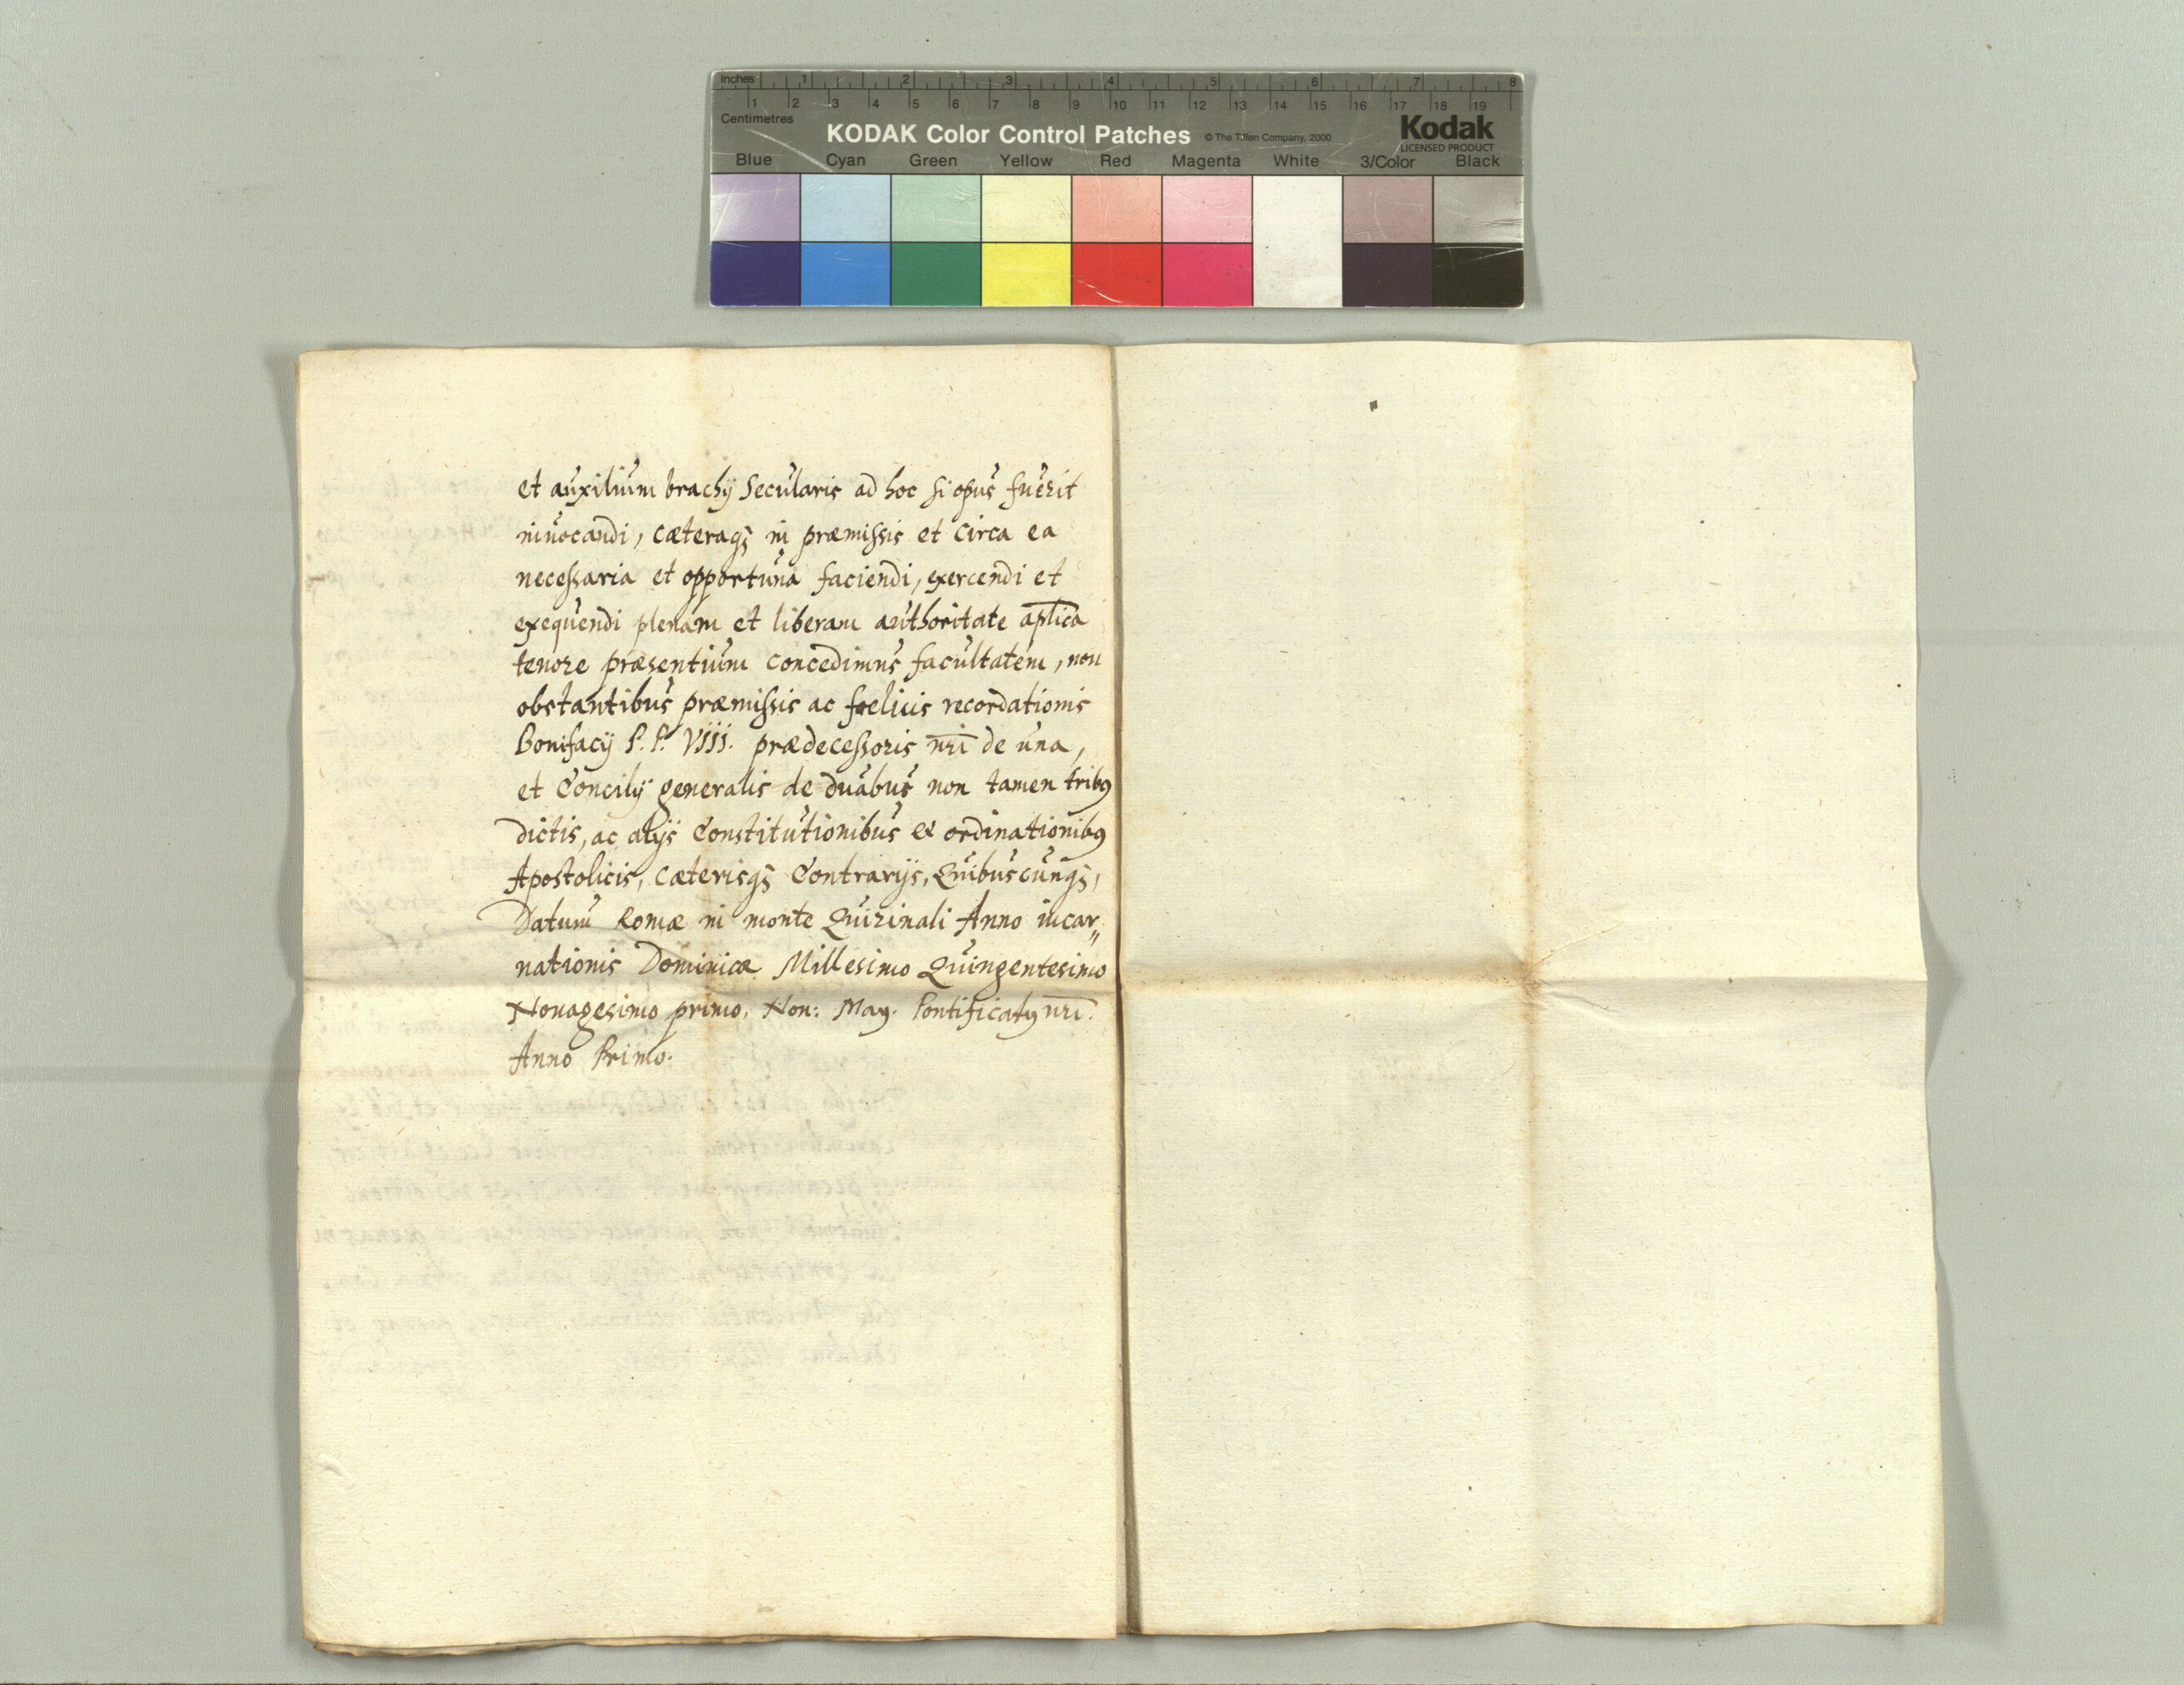 Inches 1 2 3 4 5 6 7 8
1 2 3 4 5 6 7 8 9 10 11 12 13 14 15 16 17 18 19
Centimetres
KODAK Color Control Patches © The Tiffen Company, 2000 Kodak
LICENSED PRODUCT
Blue Cyan Green Yellow Red Magenta White 3/Color Black
et auxilium brachÿ Secularis ad hoc si opus fuerit
inuocandi, cæteraqȝ in præmissis et circa ea
necessaria et opportuna faciendi, exercendi et
exequendi plenam et liberam authoritate aplica
tenore præsentium concedimus facultatem, non
obstantibus præmissis ac fœlicis recordationis
Bonifacÿ P.P. VIII. prædecessoris nri de una,
et Concilÿ generalis de duabus non tamen tribꝰ
dictis, ac alÿs Constitutionibus & ordinationibꝰ
Apostolicis, cæterisqȝ Contrarÿs, Quibuscunqȝ,
Datum Romæ in monte Quirinali Anno incar„
nationis Dominicæ Millesimo Quingentesimo
Nonagesimo primo, Non: Maÿ. Pontificatꝰ nri.
Anno Primo.